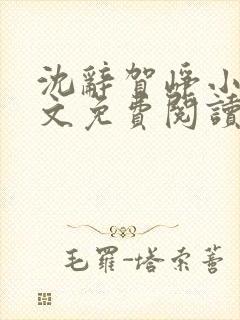 沈辭賀崢小
文免費閱讀
毛羅-塔索蓍